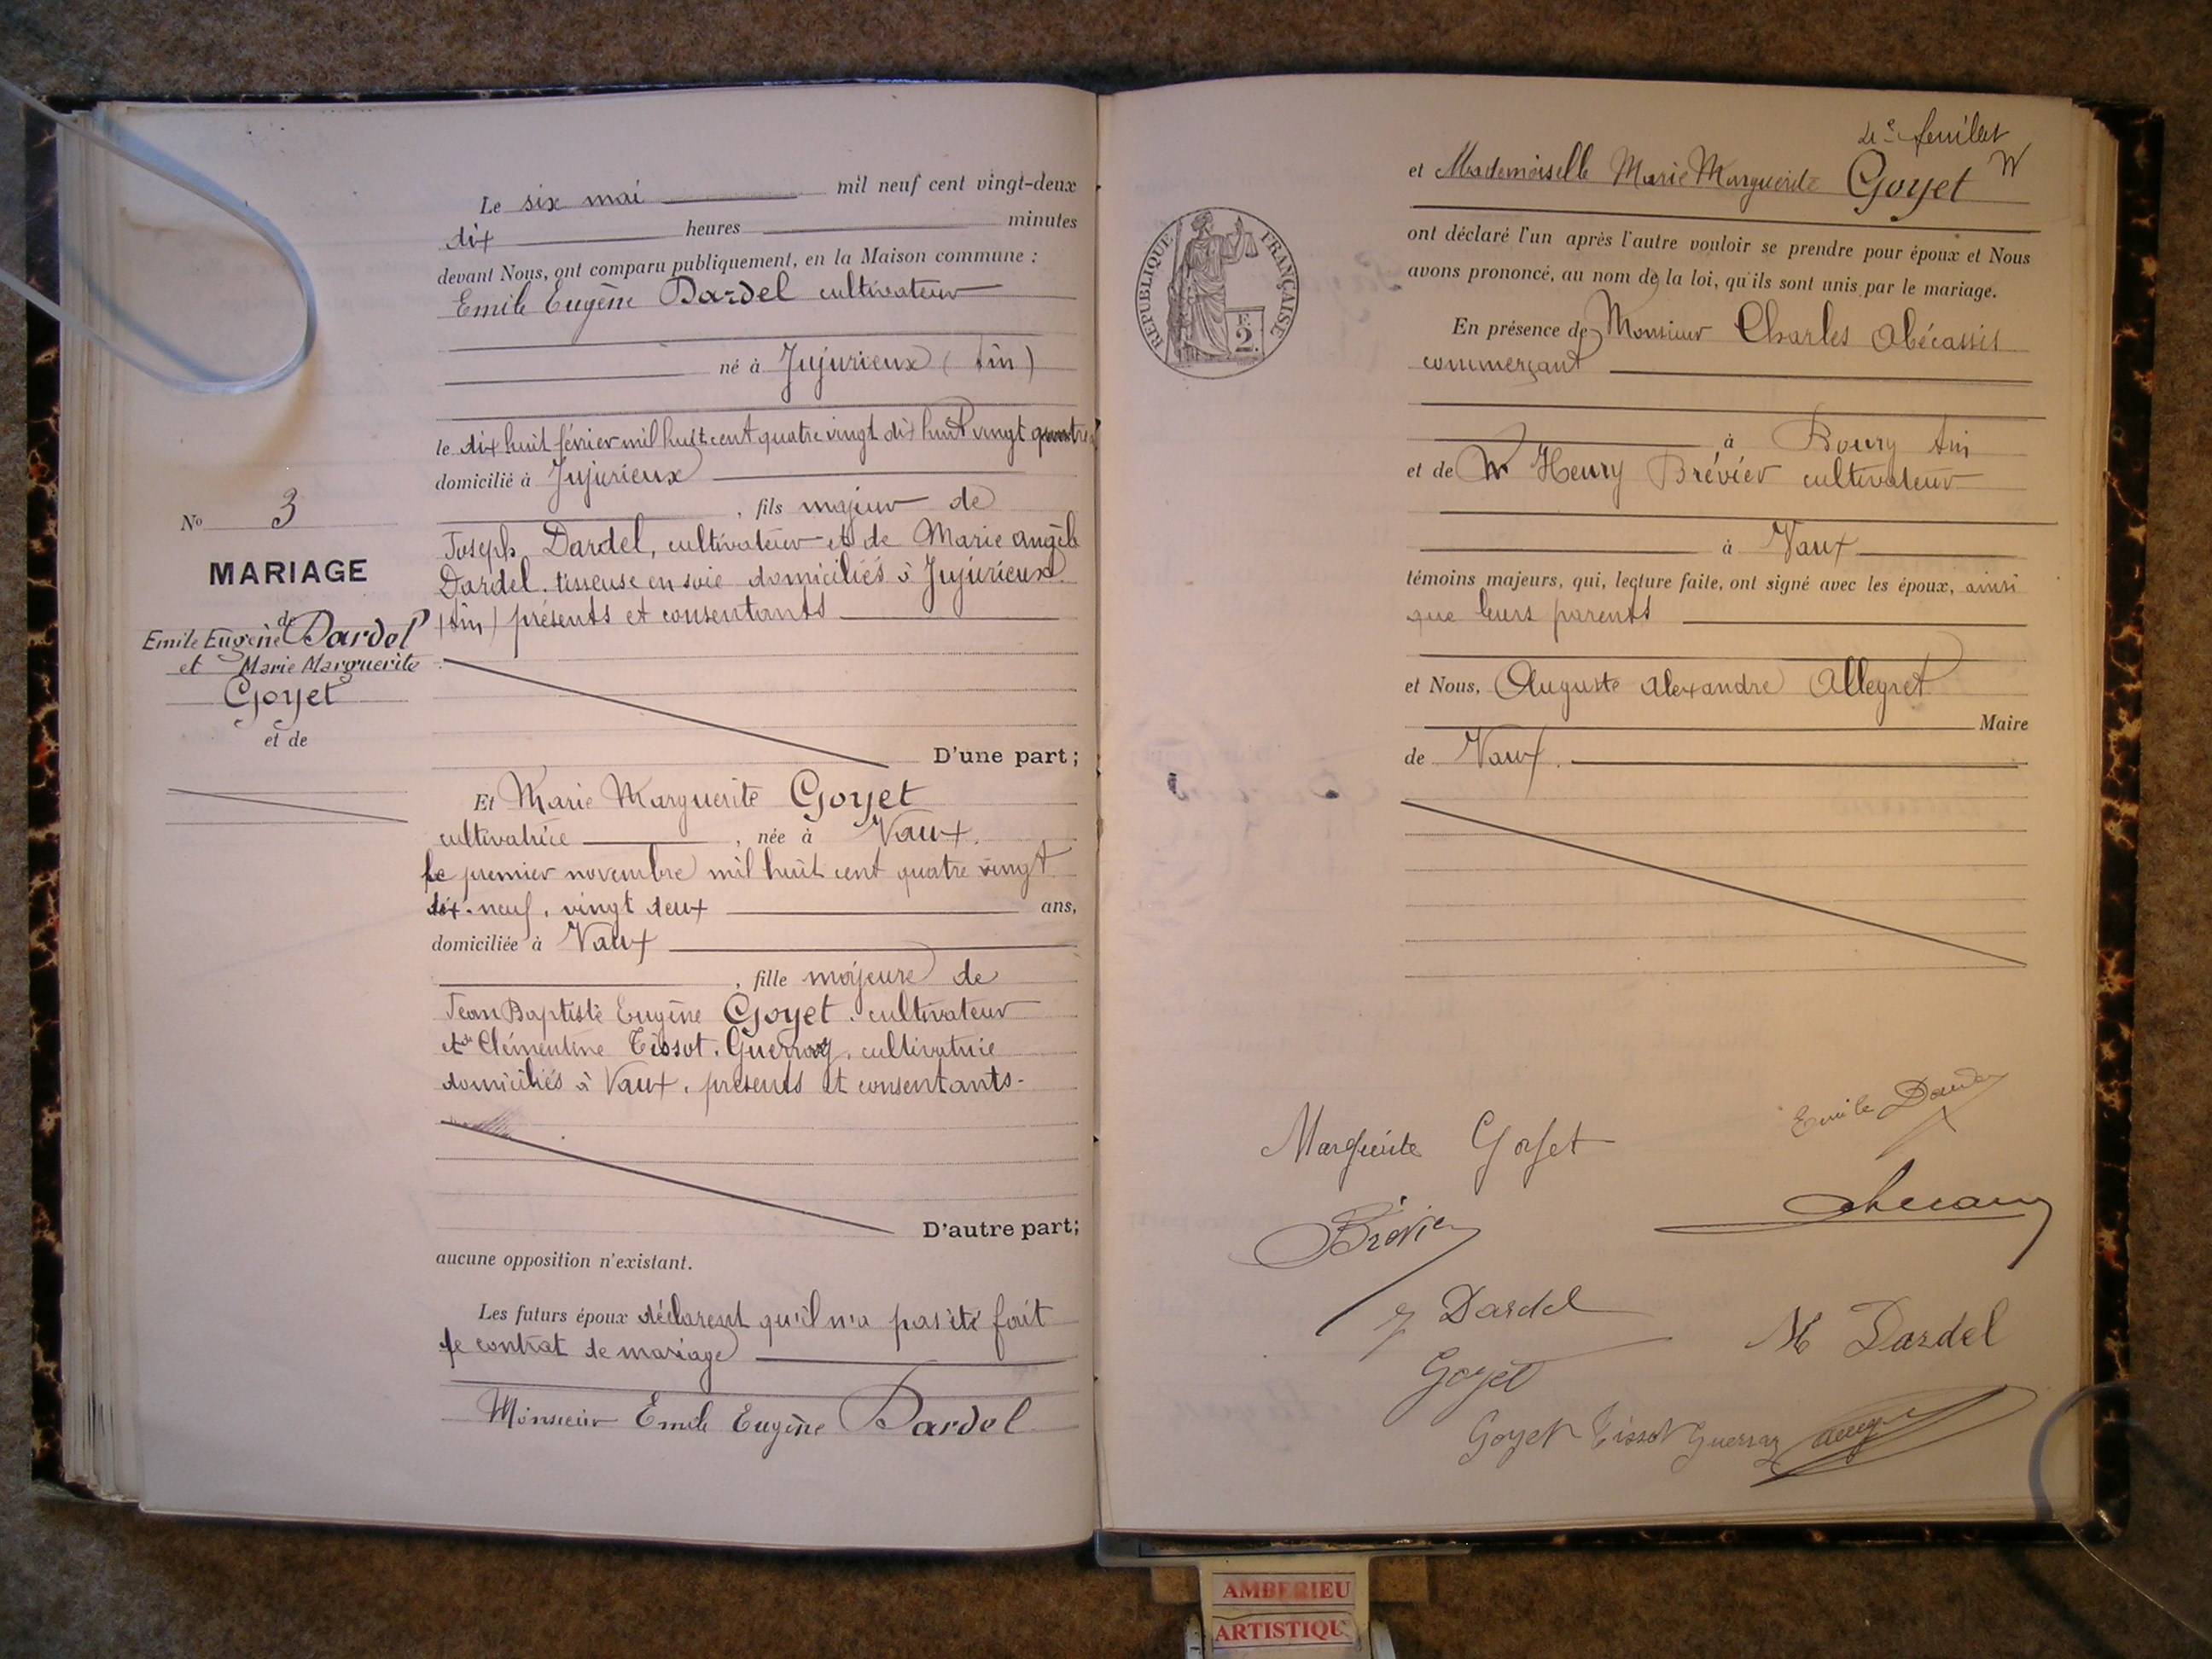 Le six mai mil neuf cent vingt-deux
dix heures minutes
devant Nous, ont comparu publiquement, en la Maison commune :
Emile Eugène Dardel cultivateur
né à Jujurieux (Ain)
le dix huit février mil huit cent quatre vingt dix huit vingt quatre
domicilié à Jujurieux
, fils majeur de
Joseph Dardel, cultivateur et de Marie Angèle
Dardel, tisseuse en soie domiciliés à Jujurieux
(Ain) présents et consentants
D'une part ;
No 3
MARIAGE
de
Emile Eugène Dardel
et Marie Marguerite
Goyet
et de
Et Marie Marguerite Goyet
cultivatrice , née à Vaux.
le premier novembre mil huit cent quatre vingt
dix-neuf, vingt deux ans,
domiciliée à Vaux
, fille majeure de
Jean Baptiste Eugène Goyet, cultivateur
et de Clémentine Tissot-Guerraz, cultivatrice
domiciliés à Vaux, présents et consentants-
D'autre part;
aucune opposition n'existant.
Les futurs époux déclarent qu'il n'a pas été fait
de contrat de mariage
Monsieur Emile Eugène Dardel
4e feuillet
et Mademoiselle Marie Marguerite Goyet
ont déclaré l'un après l'autre vouloir se prendre pour époux et Nous
avons prononcé, au nom de la loi, qu'ils sont unis par le mariage.
REPUBLIQUE FRANÇAISE
F.
2.
En présence de Monsieur Charles Abécassis
commerçant
à Bourg Ain
et de Mr Henry Brévier cultivateur
à Vaux
témoins majeurs, qui, lecture faite, ont signé avec les époux, ainsi
que leurs parents
et Nous, Auguste Alexandre Allegret
Maire
de Vaux.
Marguerite Goyet
Emile Dardel
Brévier
J Dardel
M Dardel
Goyet
Goyet Tissot Guerraz
AMBERIEU
ARTISTIQU